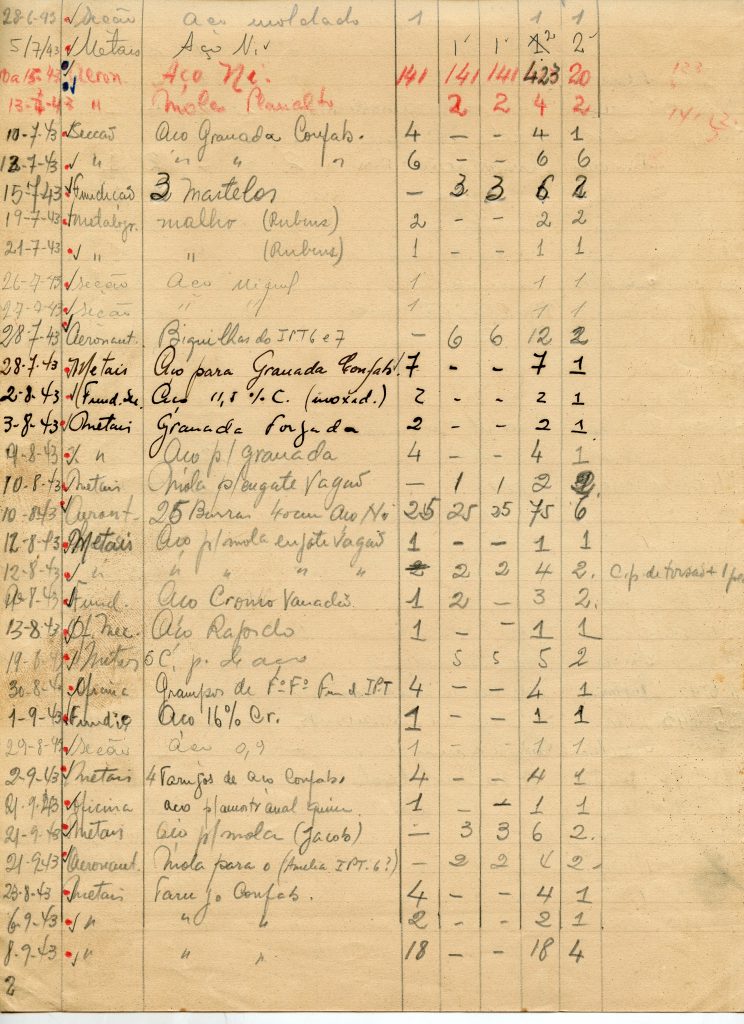 28-6-43 Secção Aço moldado 1 1 1
5/7/43 Metais Aço Ni 1 1 2
15-43 Aço Ni. 141 141 141 423 20
13-7-43 " Mola 2 2 4 2
10-7-43 Secção Aço Granada Confab. 4 - - 4 1
12-7-43 " " " " 6 - - 6 6
15-7-43 Fundição 3 Martelos - 3 3 6 2
19-7-43 Metalogr. malho (Rubens) 2 - - 2 2
21-7-43 " " (Rubens) 1 - - 1 1
26-7-43 Secção Aço Miguel 1 1 1
27-7-43 Secção " " 1 1 1
28-7-43 Aeronaut. Biquilhas do IPT 6 e 7 - 6 6 12 2
28-7-43 Metais Aço para Granada Confab. 7 - - 7 1
2-8-43 Fund. Aço 11,5 % C. (inoxid.) 2 - - 2 1
3-8-43 Metais Granada Forjada 2 - - 2 1
9-8-43 " Aco p/ granada 4 - - 4 1
10-8-43 Metais Mola p/engate Vagaõ - 1 1 2 2.
10-8-43 Aeront- 25 Barras 40cm Aco Ni 25 25 25 75 6
12-8-43 Metais Aco p/mola engate Vagaõ 1 - - 1 1
12-8-43 " " " " " 2 2 2 4 2. C.p. de torsaõ + 1
8-43 Fund. Aco Cromo Vanadio 1 2 - 3 2.
13-8-43 Of. Mec. Aço Rapido 1 - - 1 1
19-8-43 Metais 5 C. p. de aço 5 5 5 2
30-8-43 Oficina Grampos de Fº Fº Fund. IPT 4 - - 4 1
1-9-43 Fundiç Aco 16% Cr. 1 - - 1 1
29-8-43 Secção Aço 0,9 1 - - 1 1
2-9-43 Metais 4 Tarugos de aco Confab. 4 - - 4 1
21-9-43 Oficina aco p/amostr anal quim. 1 - - 1 1
21-9-43 Metais aço p/mola (Jacob) - 3 3 6 2.
21-9-43 Aeronaut. Mola para o (Amelia IPT-6?) - 2 2 4 2-
23-8-43 Metais Tarugo Confab. 4 - - 4 1
6-9-43 " " " 2 - - 2 1
8-9-43 " " " 18 - - 18 4
2